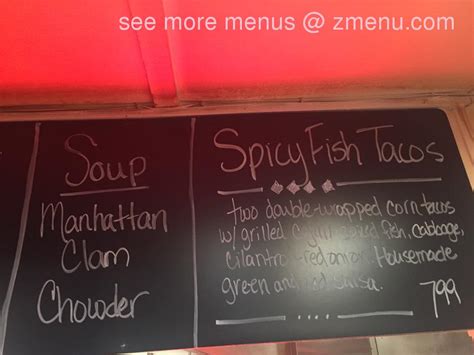 see more menus @ zmenu.com
Soup
Manhattan
Clam
Chowder
Spicy Fish Tacos
two double-wrapped corn tacos
w/ grilled, cajun spiced fish, cabbage,
cilantro-red onion. Housemade
green and red salsa.
799